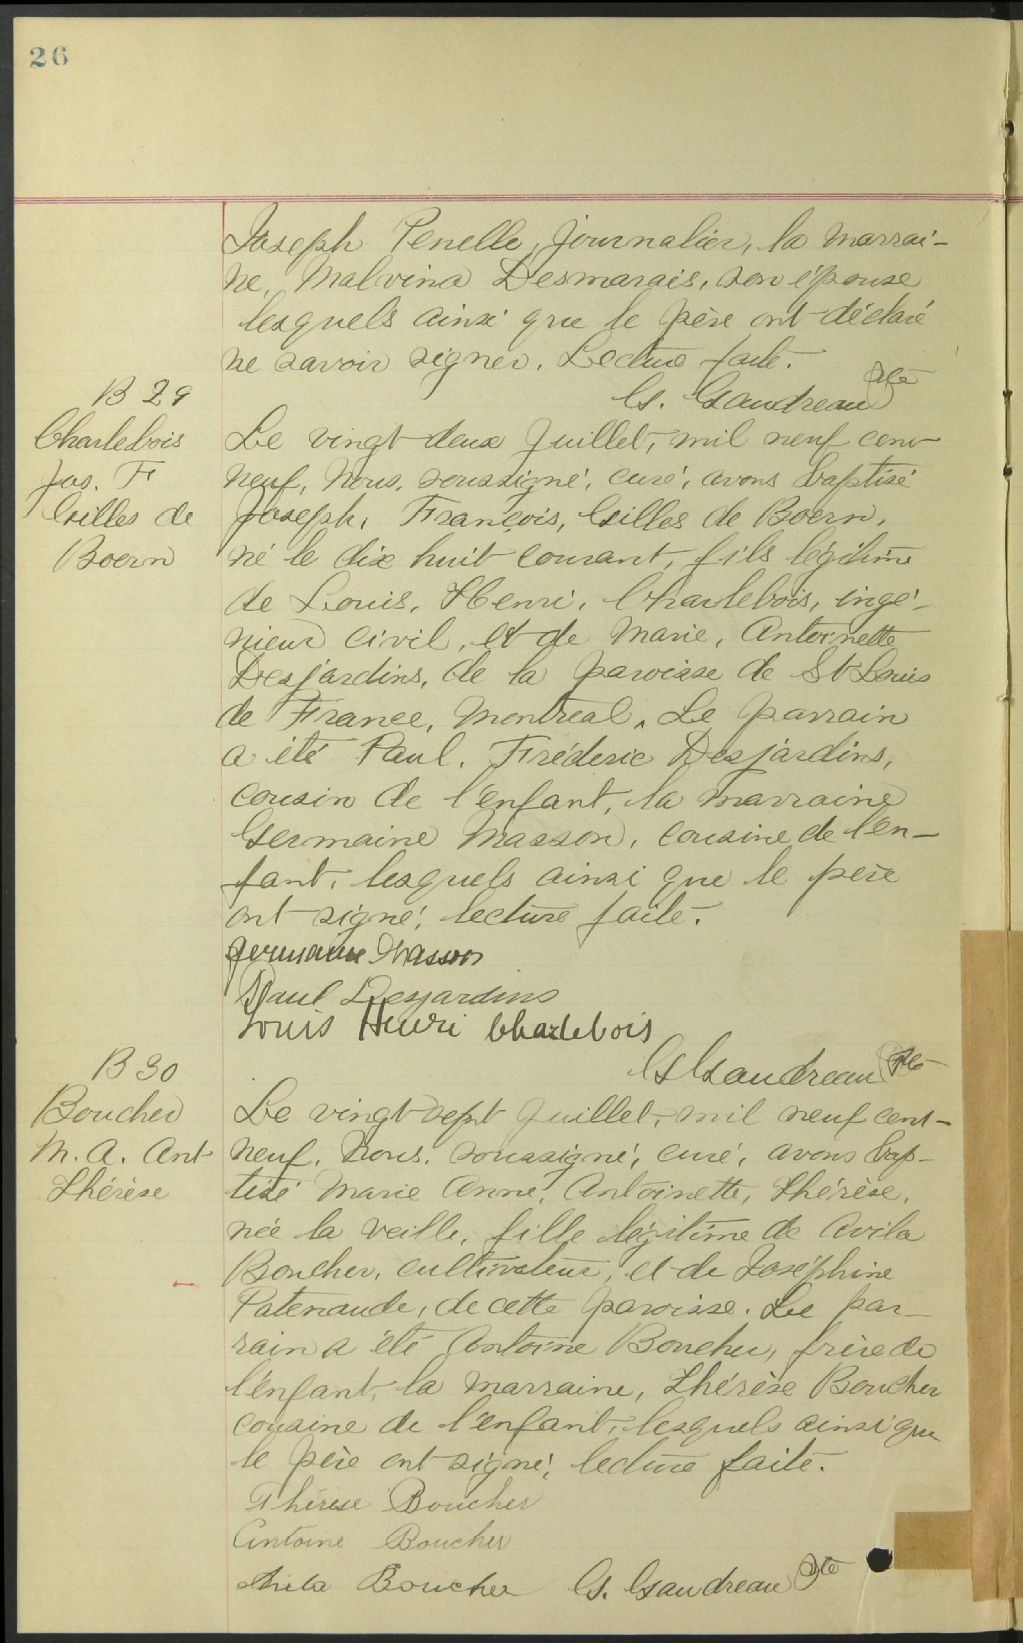 26
Joseph Penelle, journalier, la marrai-
ne, Malvina Desmarais, son épouse
lesquels ainsi que le père ont déclaré
ne savoir signer. Lecture faite.
G. Gaudreau Ptre
B 29
Charlebois
Jos. F
Gilles de
Boern
Le vingt-deux Juillet, mil neuf cent
neuf, nous, soussigné, curé, avons baptisé
Joseph, François, Gilles de Boern,
né le dix huit courant, fils légitime
de Louis, Henri, Charlebois, ingé-
nieur civil, et de Marie, Antoinette
Desjardins, de la paroisse de St Louis
de France, Montréal. Le parrain
a été Paul, Fréderic Desjardins,
cousin de l'enfant, la marraine
Germaine Masson, cousine de l'en-
fant, lesquels ainsi que le père
ont signé, lecture faite.
Germaine Masson
Paul Desjardins
Louis Henri Charlebois
G Gaudreau Ptre
B 30
Boucher
M. A. Ant
Thérèse
Le vingt-sept Juillet, mil neuf cent-
neuf, nous, soussigné, curé, avons bap-
tisé Marie Anne, Antoinette, Thérèse,
née la veille, fille légitime de Avila
Boucher, cultivateur, et de Joséphine
Patenaude, de cette paroisse. Le par-
rain a été Antoine Boucher, frère de
l'enfant, la marraine, Thérèse Boucher
cousine de l'enfant, lesquels ainsi que
le père ont signé, lecture faite.
Thérèse Boucher
Antoine Boucher
Avila Boucher G. Gaudreau Ptre